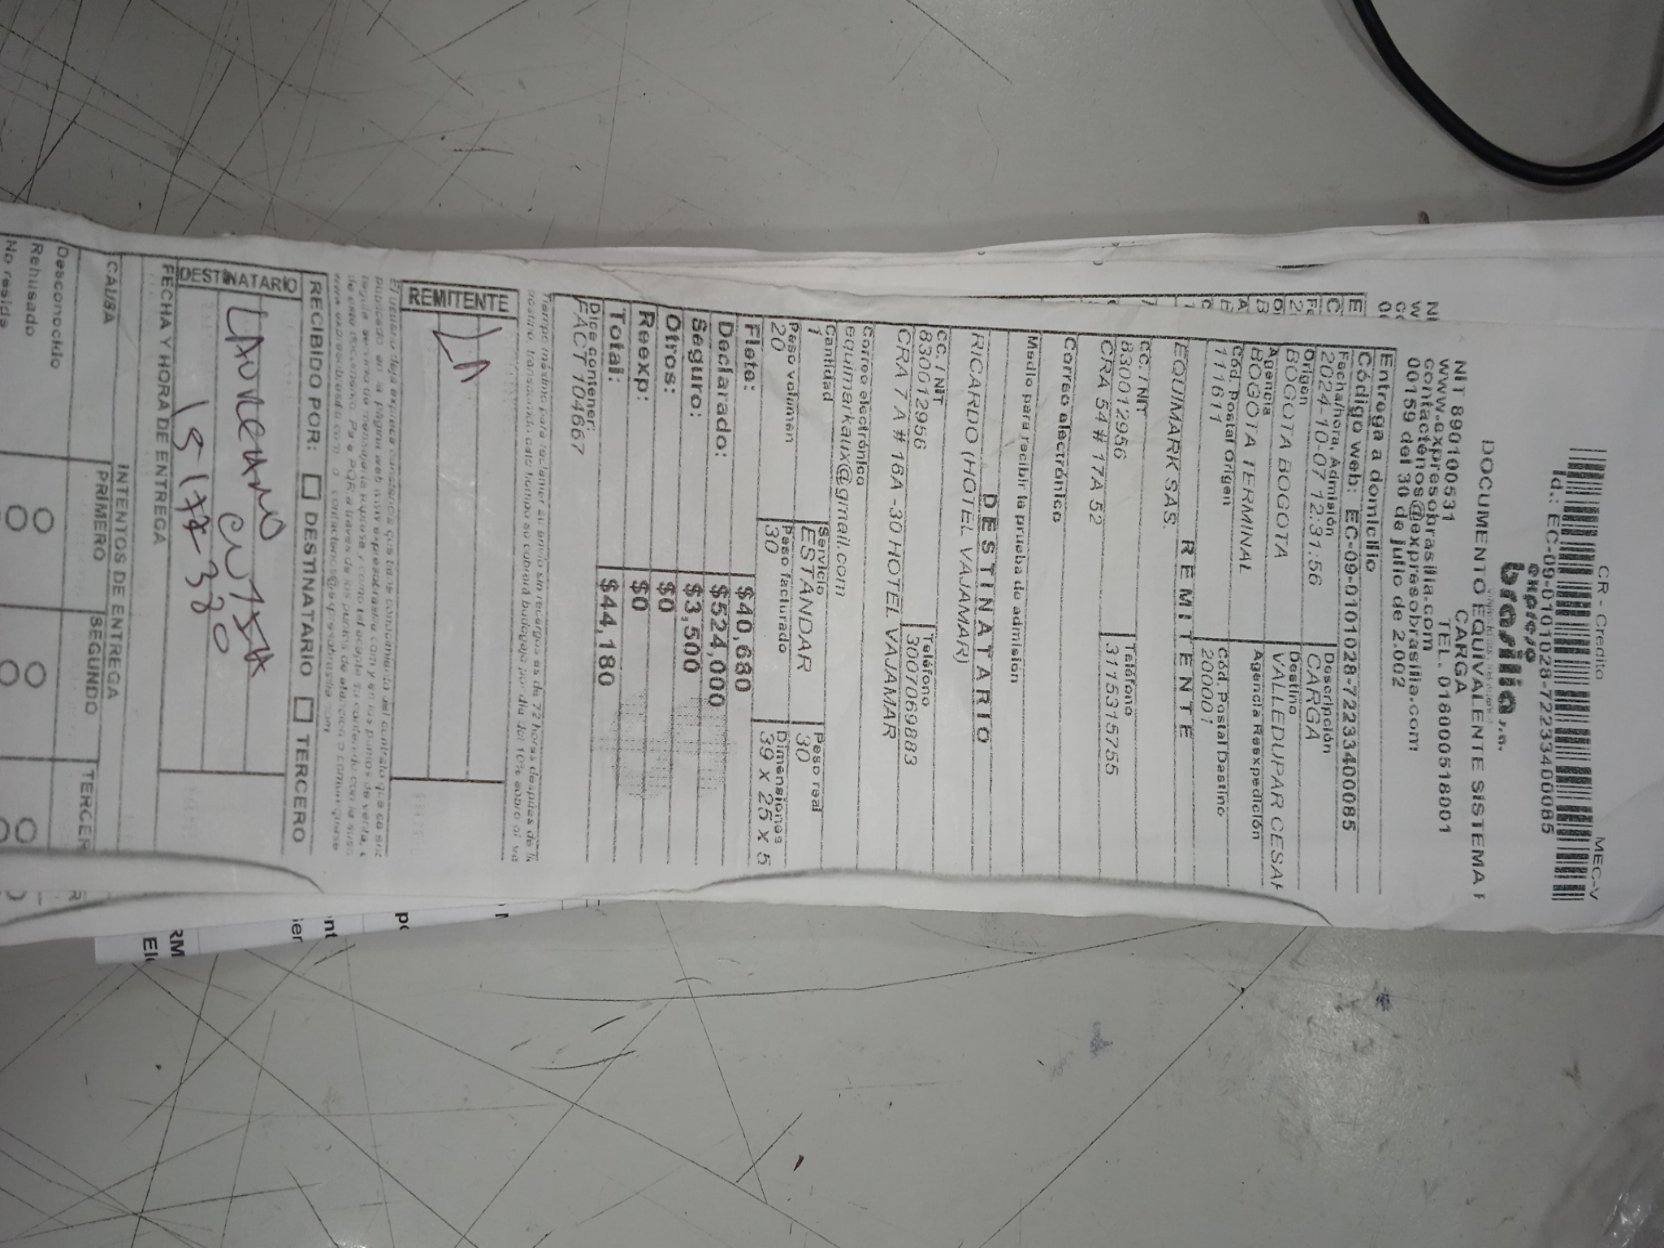 CR - Credito MEC-V
Id.: EC-09-0101028-7223340​0085
expreso
brasilia s.a.
DOCUMENTO EQUIVALENTE SISTEMA P
CARGA
NIT 890100531 TEL. 018000518001
www.expresobrasilia.com
contactenos@expresobrasilia.com
00159 del 30 de julio de 2.002
Entrega a domicilio
Código web: EC-09-0101028-72233400085
Fecha/hora. Admisión Descripción
2024-10-07 12:31:56 CARGA
Origen Destino
BOGOTA BOGOTA VALLEDUPAR CESAR
Agencia Agencia Reexpedición
BOGOTA TERMINAL
Cód. Postal Origen Cód. Postal Destino
111611 200001
REMITENTE
EQUIMARK SAS.
CC. / NIT Teléfono
830012956 3115315755
CRA 54 # 17A 52
Correo electrónico
Medio para recibir la prueba de admisión
DESTINATARIO
RICARDO (HOTEL VAJAMAR)
CC. / NIT Teléfono
830012956 3007069883
CRA 7 A # 16A -30 HOTEL VAJAMAR
Correo electrónico
equimarkaux@gmail.com
Cantidad Servicio Peso real
1 ESTÁNDAR 30
Peso volumen Peso facturado Dimensiones
20 30 39 x 25 x 5
Flete: $40,680
Declarado: $524,000
Seguro: $3,500
Otros: $0
Reexp: $0
Total: $44,180
Dice contener:
FACT 104667
REMITENTE
RECIBIDO POR: DESTINATARIO TERCERO
DESTINATARIO
Laureano
FECHA Y HORA DE ENTREGA
INTENTOS DE ENTREGA
CAUSA PRIMERO SEGUNDO TERCER
Desconocido
Rehusado
No reside